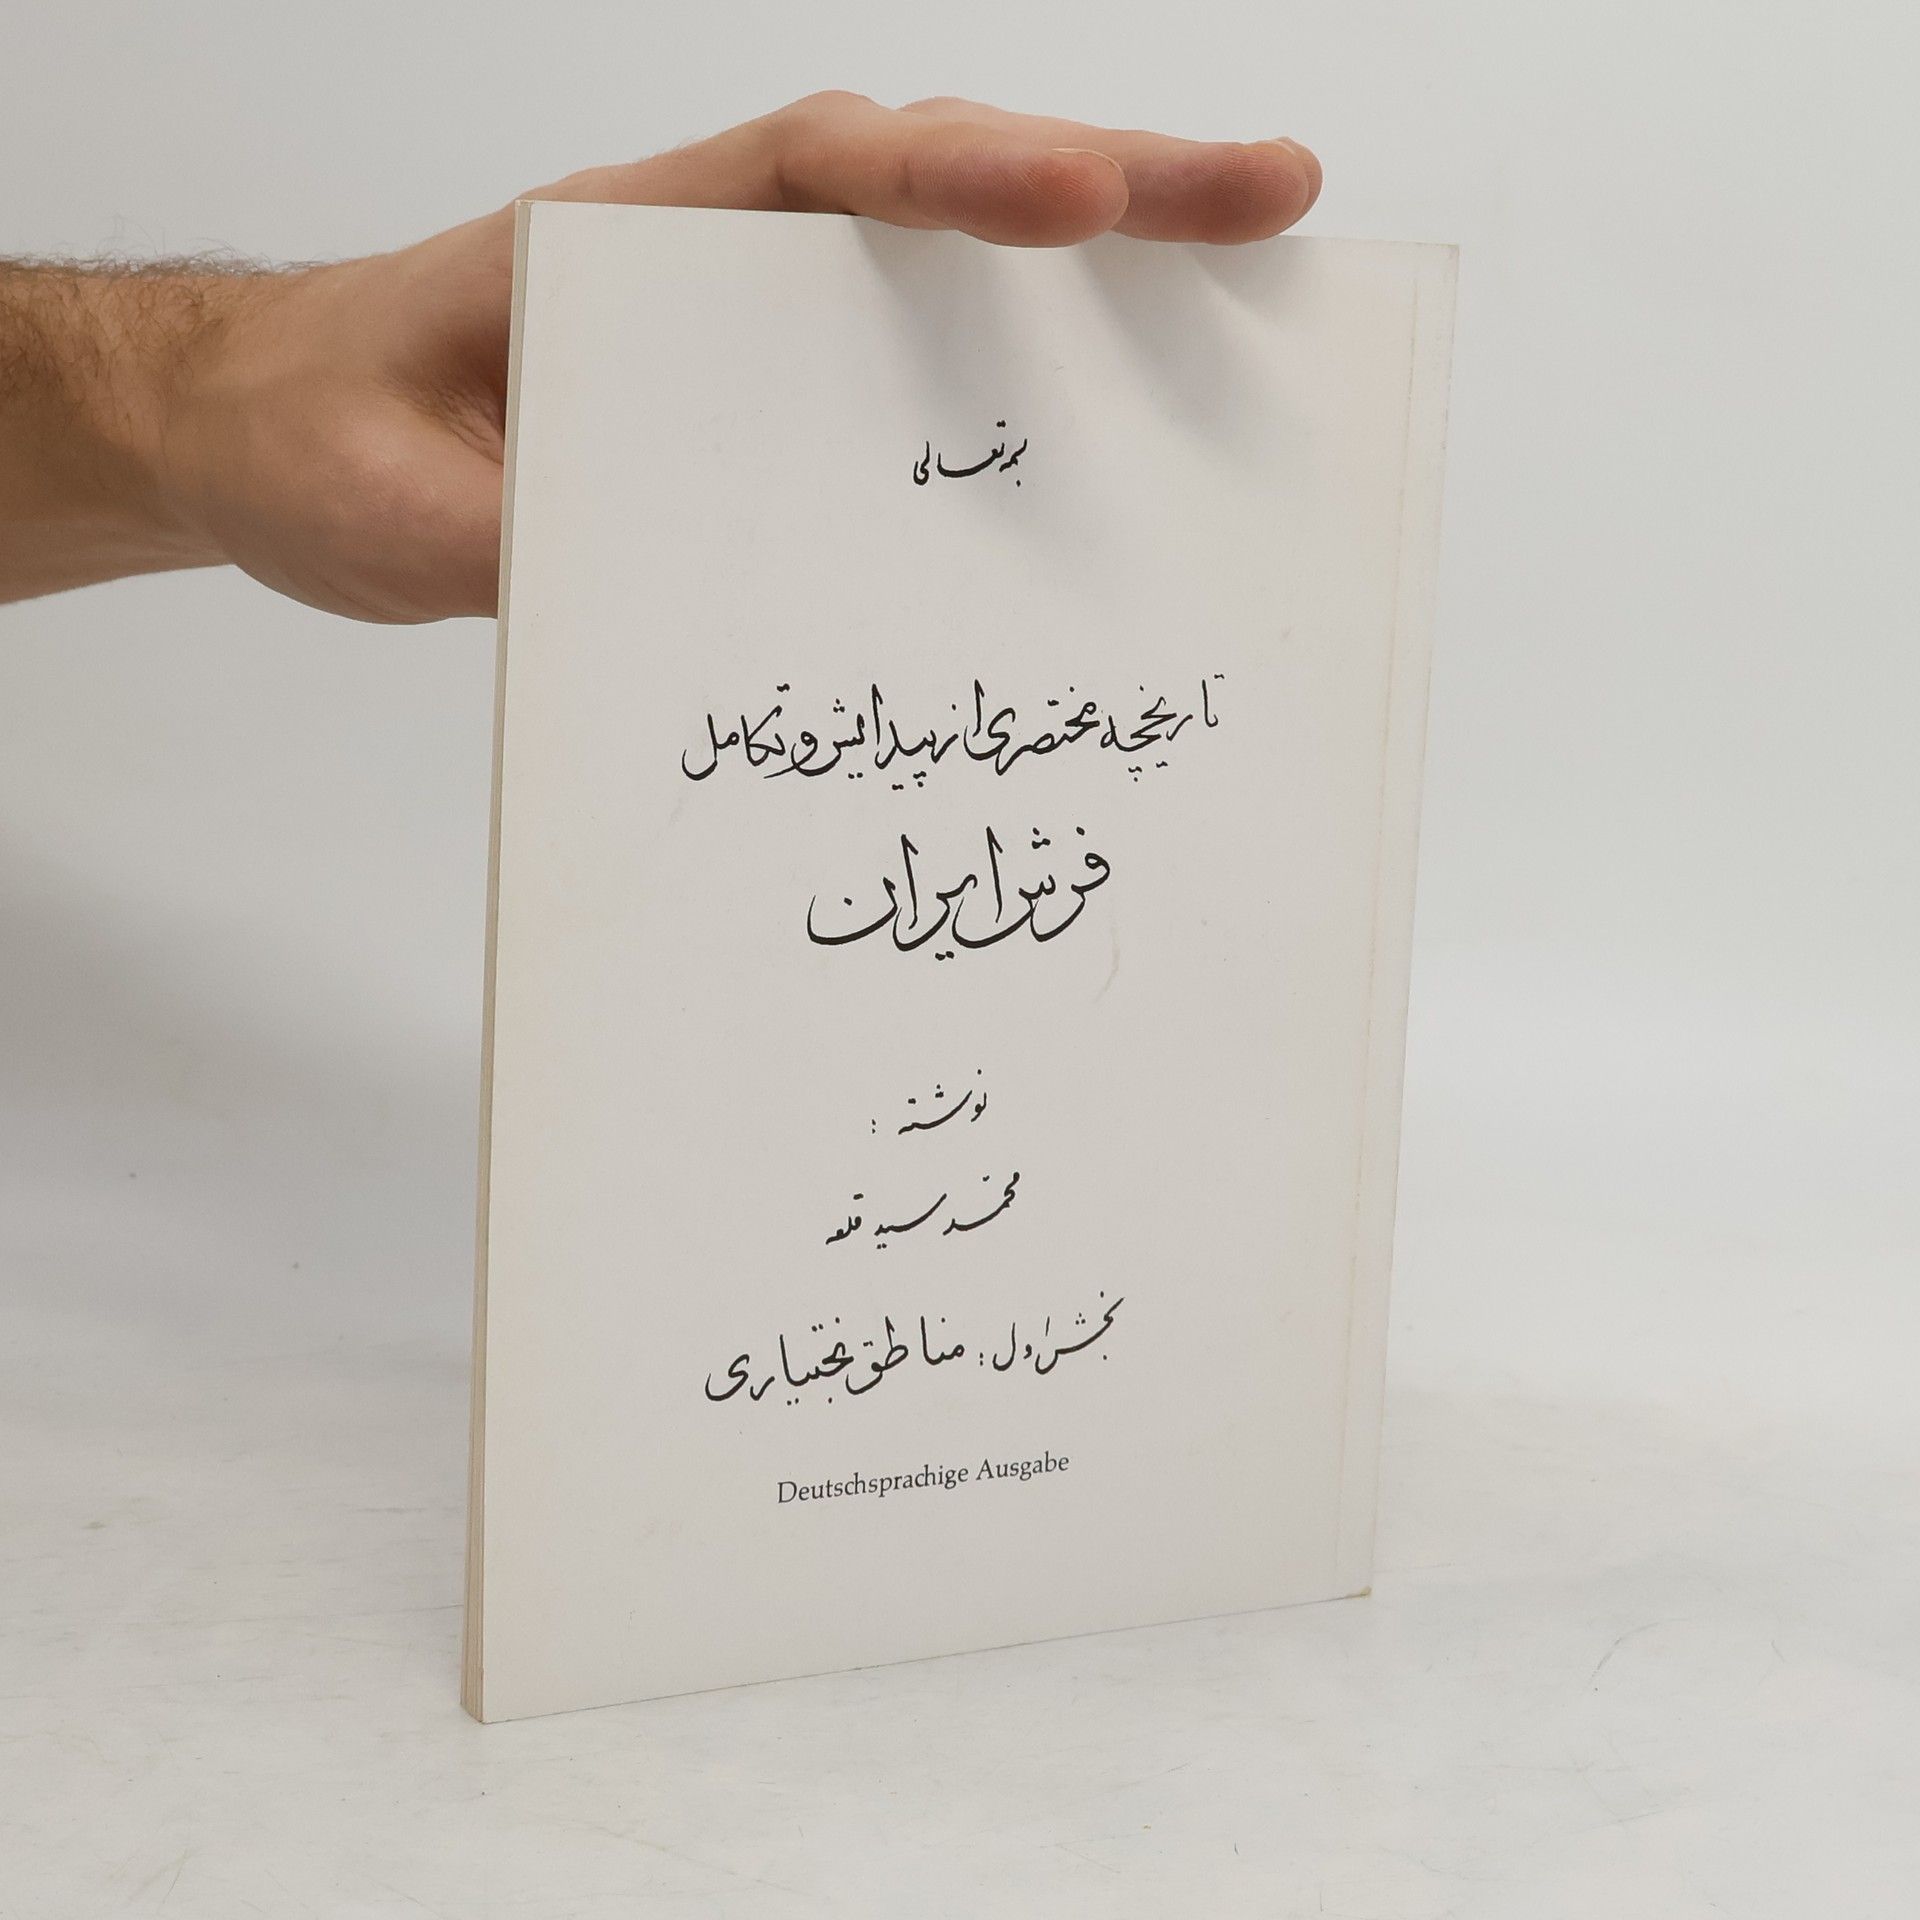 بسمه تعالی
تاریخچه مختصری از پیدایش و تکامل
فرش ایران
نوشته :
محمد سید قلعه
بخش اول : مناطق بختیاری
Deutschsprachige Ausgabe